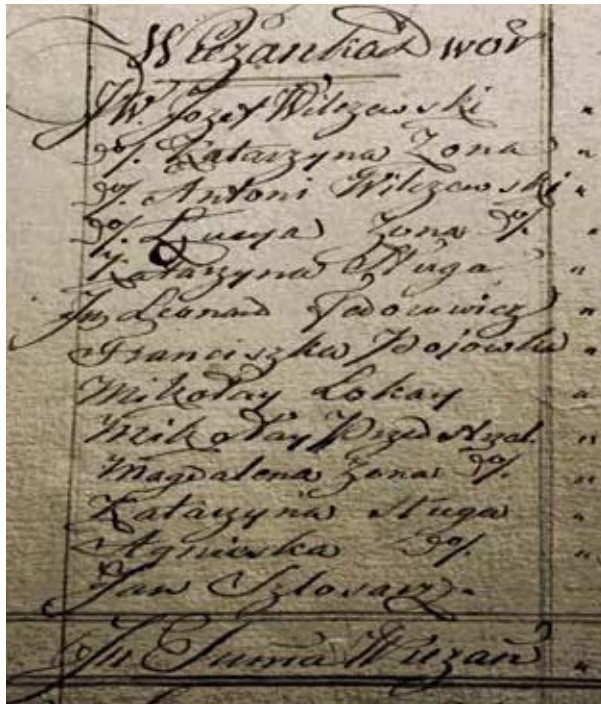 Wiżanka Dwór
JW. Jozef Wilczewski "
do/. Katarzyna Zona "
do/. Antoni Wilczewski "
do/. Lucya Zona do/. "
Katarzyna Sługa "
Jn Leonard Fedorowicz "
Franciszka Pojowka "
Mikołay Lokay "
Mikołay Przedstrzal. "
Magdalena Zona do/. "
Katarzyna Sługa "
Agnieska do/. "
Jan Szlosarz
Jn Summa Wiżań "